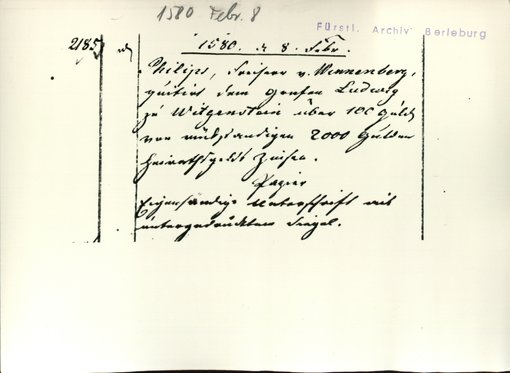 1580 Febr. 8
Fürstl. Archiv Berleburg
2185
1580. d 8. Febr.
Philips, Freiherr v. Winnenberg,
quitirt dem Grafen Ludwig
zu Witgenstein über 100 Guld
von rückständigen 2000 Gulden
Heirathsgelds Zinsen.
Papier
Eigenhändige Unterschrift mit
untergedrucktem Siegel.